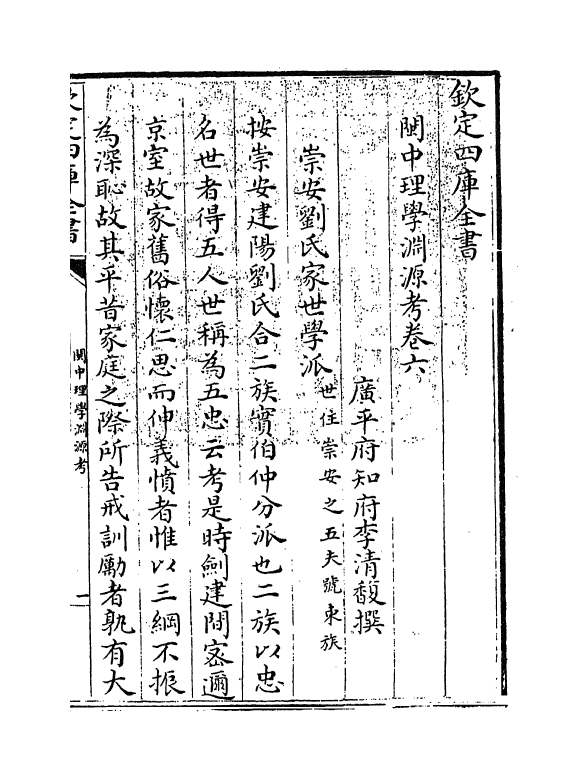 欽定四庫全書
閩中理學淵源考卷六
廣平府知府李清馥撰
崇安劉氏家世學派
世住崇安之五夫號東族
按崇安建陽劉氏合二族實伯仲分派也二族以忠
名世者得五人世稱為五忠云考是時劍建間密邇
京室故家舊俗懷仁思而仲義憤者惟以三綱不振
為深恥故其平昔家庭之際所告戒訓勵者孰有大
欽定四庫全書
閩中理學淵源考
一